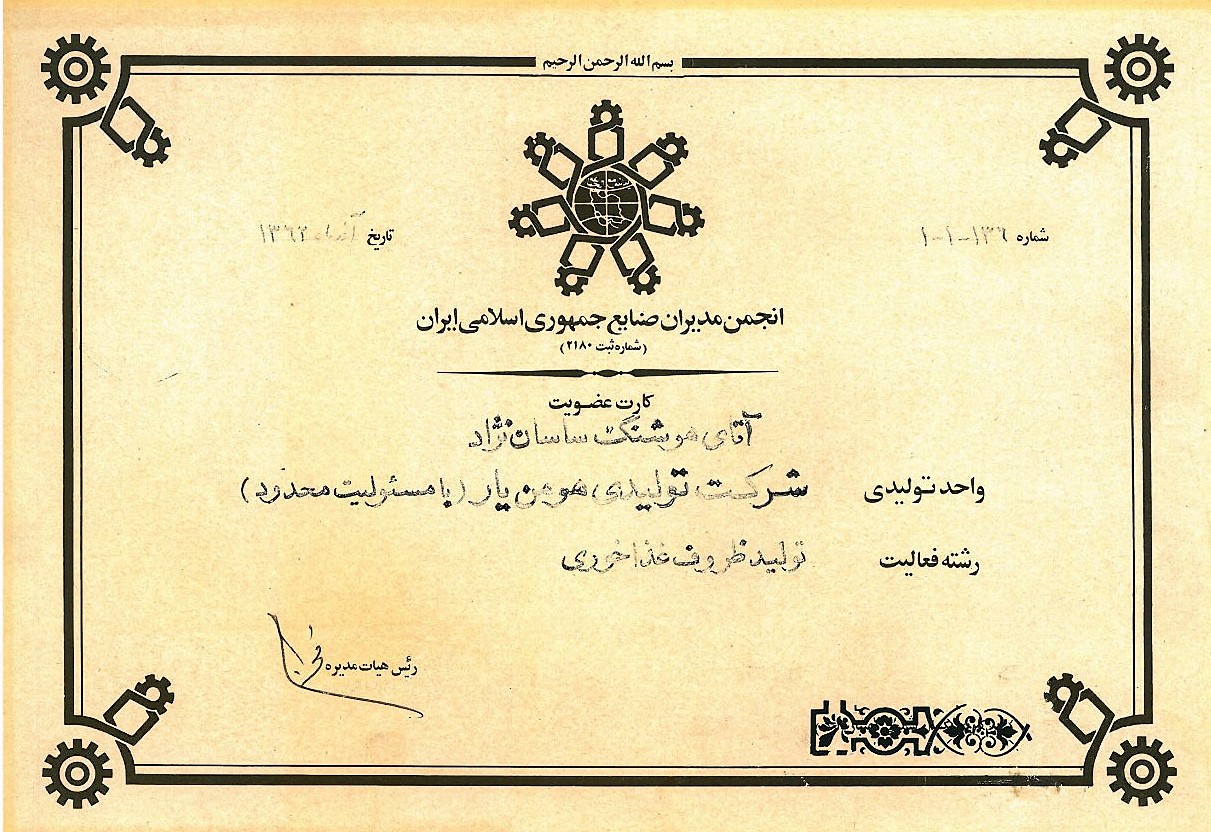 بسم الله الرحمن الرحیم
شماره ۱۳۶-۱-۱
تاریخ ۱۳۶۲
انجمن مدیران صنایع جمهوری اسلامی ایران
(شماره ثبت ۲۱۸۰)
کارت عضویت
آقای هوشنگ ساسان نژاد
واحد تولیدی شرکت تولیدی هومن یار (با مسئولیت محدود)
رشته فعالیت تولید ظروف غذاخوری
رئیس هیات مدیره